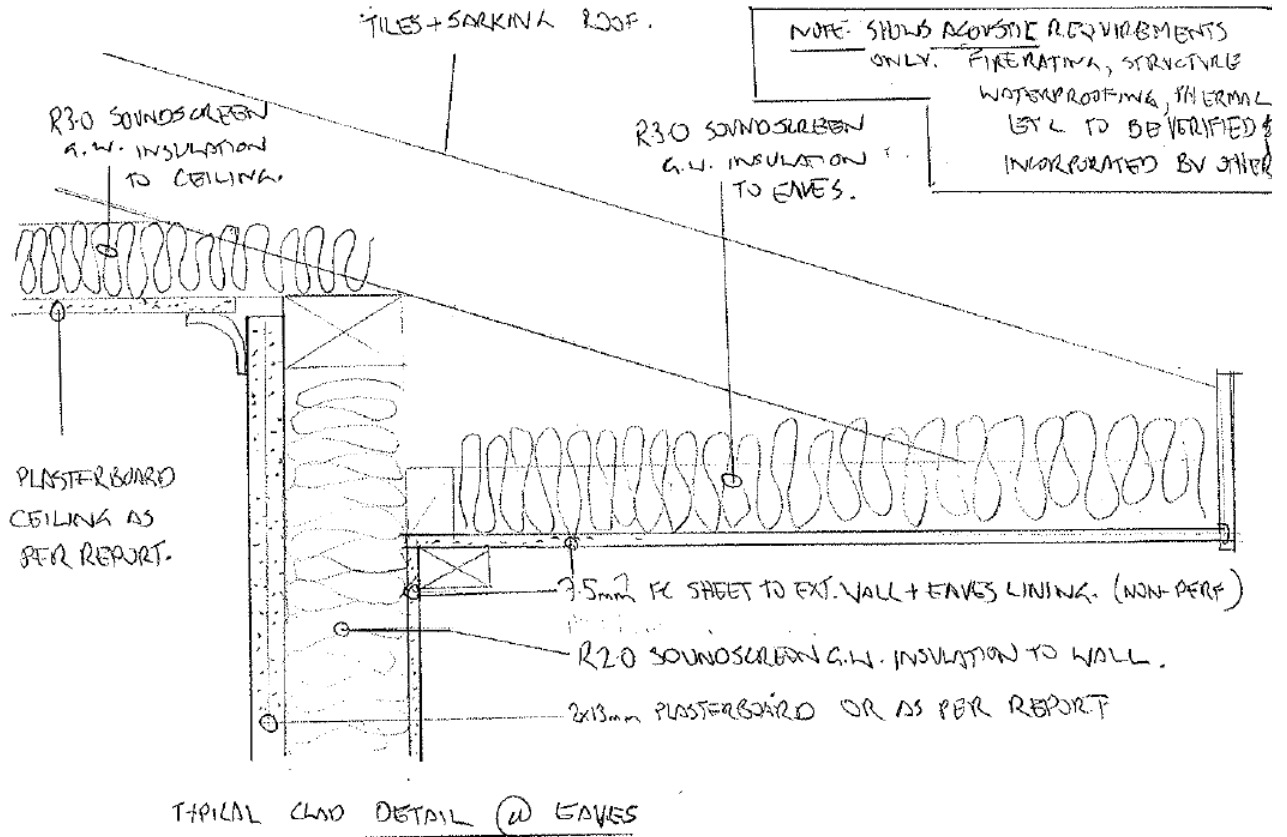 TILES + SARKING ROOF.
NOTE: SHOWS ACOUSTIC REQUIREMENTS
ONLY. FIRERATING, STRUCTURE
WATERPROOFING, THERMAL
ETC TO BE VERIFIED &
INCORPORATED BY OTHER
R3.0 SOUNDSCREEN
G.W. INSULATION
TO CEILING.
R3.0 SOUNDSCREEN
G.W. INSULATION
TO EAVES.
PLASTERBOARD
CEILING AS
PER REPORT.
7.5mm FC SHEET TO EXT. WALL + EAVES LINING. (NON-PERF)
R2.0 SOUNDSCREEN G.W. INSULATION TO WALL.
2x13mm PLASTERBOARD OR AS PER REPORT
TYPICAL CLAD DETAIL @ EAVES